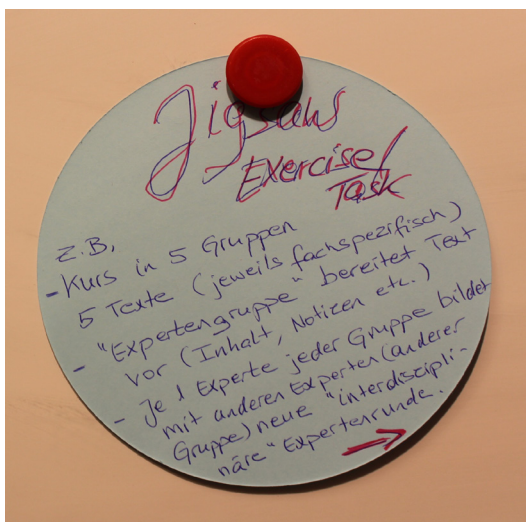 Jigsaw
Exercise/
Task
z.B.
- Kurs in 5 Gruppen
5 Texte (jeweils fachspezifisch)
- "Expertengruppe" bereitet Text
vor (Inhalt, Notizen etc.)
- Je 1 Experte jeder Gruppe bildet
mit anderen Experten (anderer
Gruppe) neue "interdiscipli-
näre" Expertenrunde.